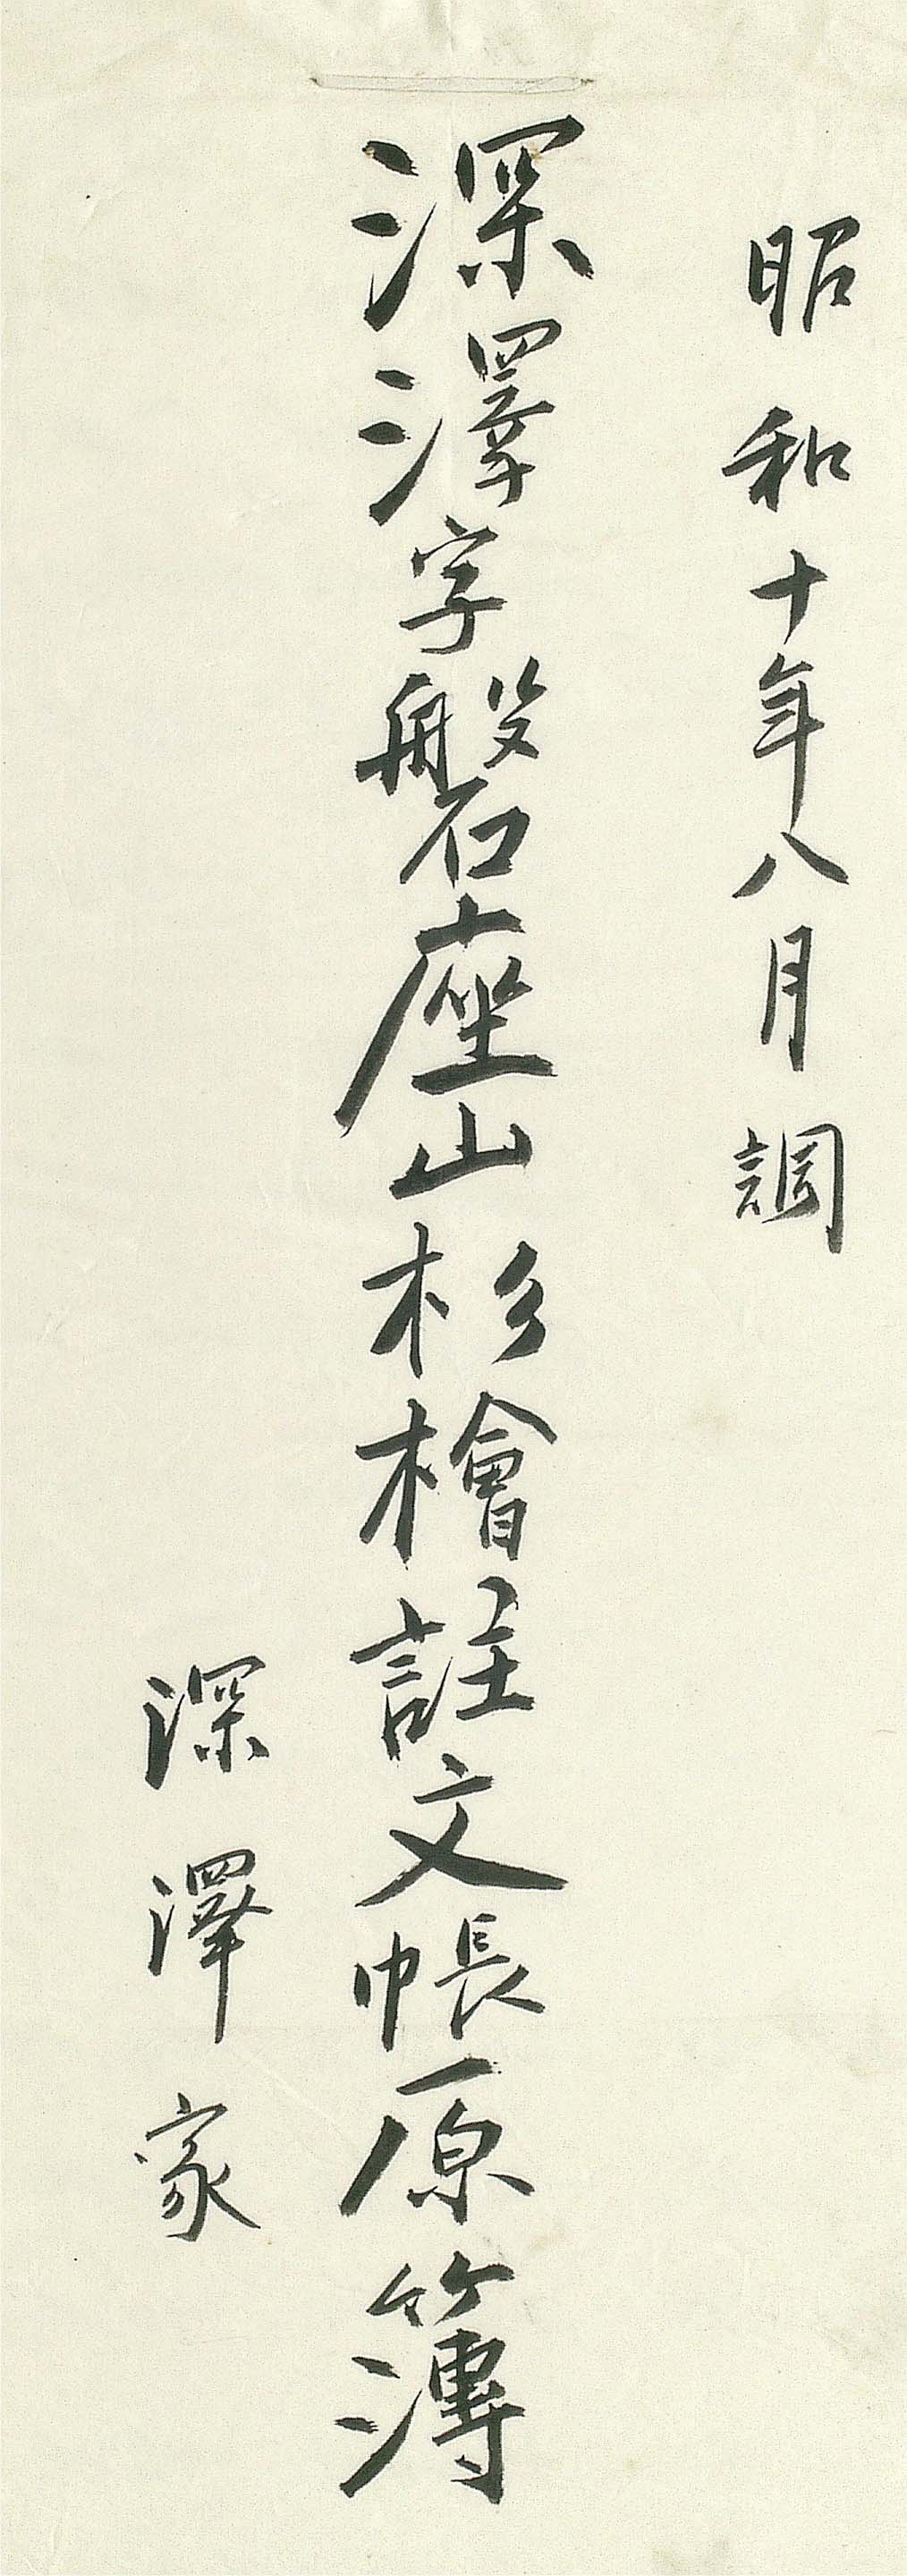 昭和十年八月調
深澤字磐座山杉檜註文帳原簿
深澤家